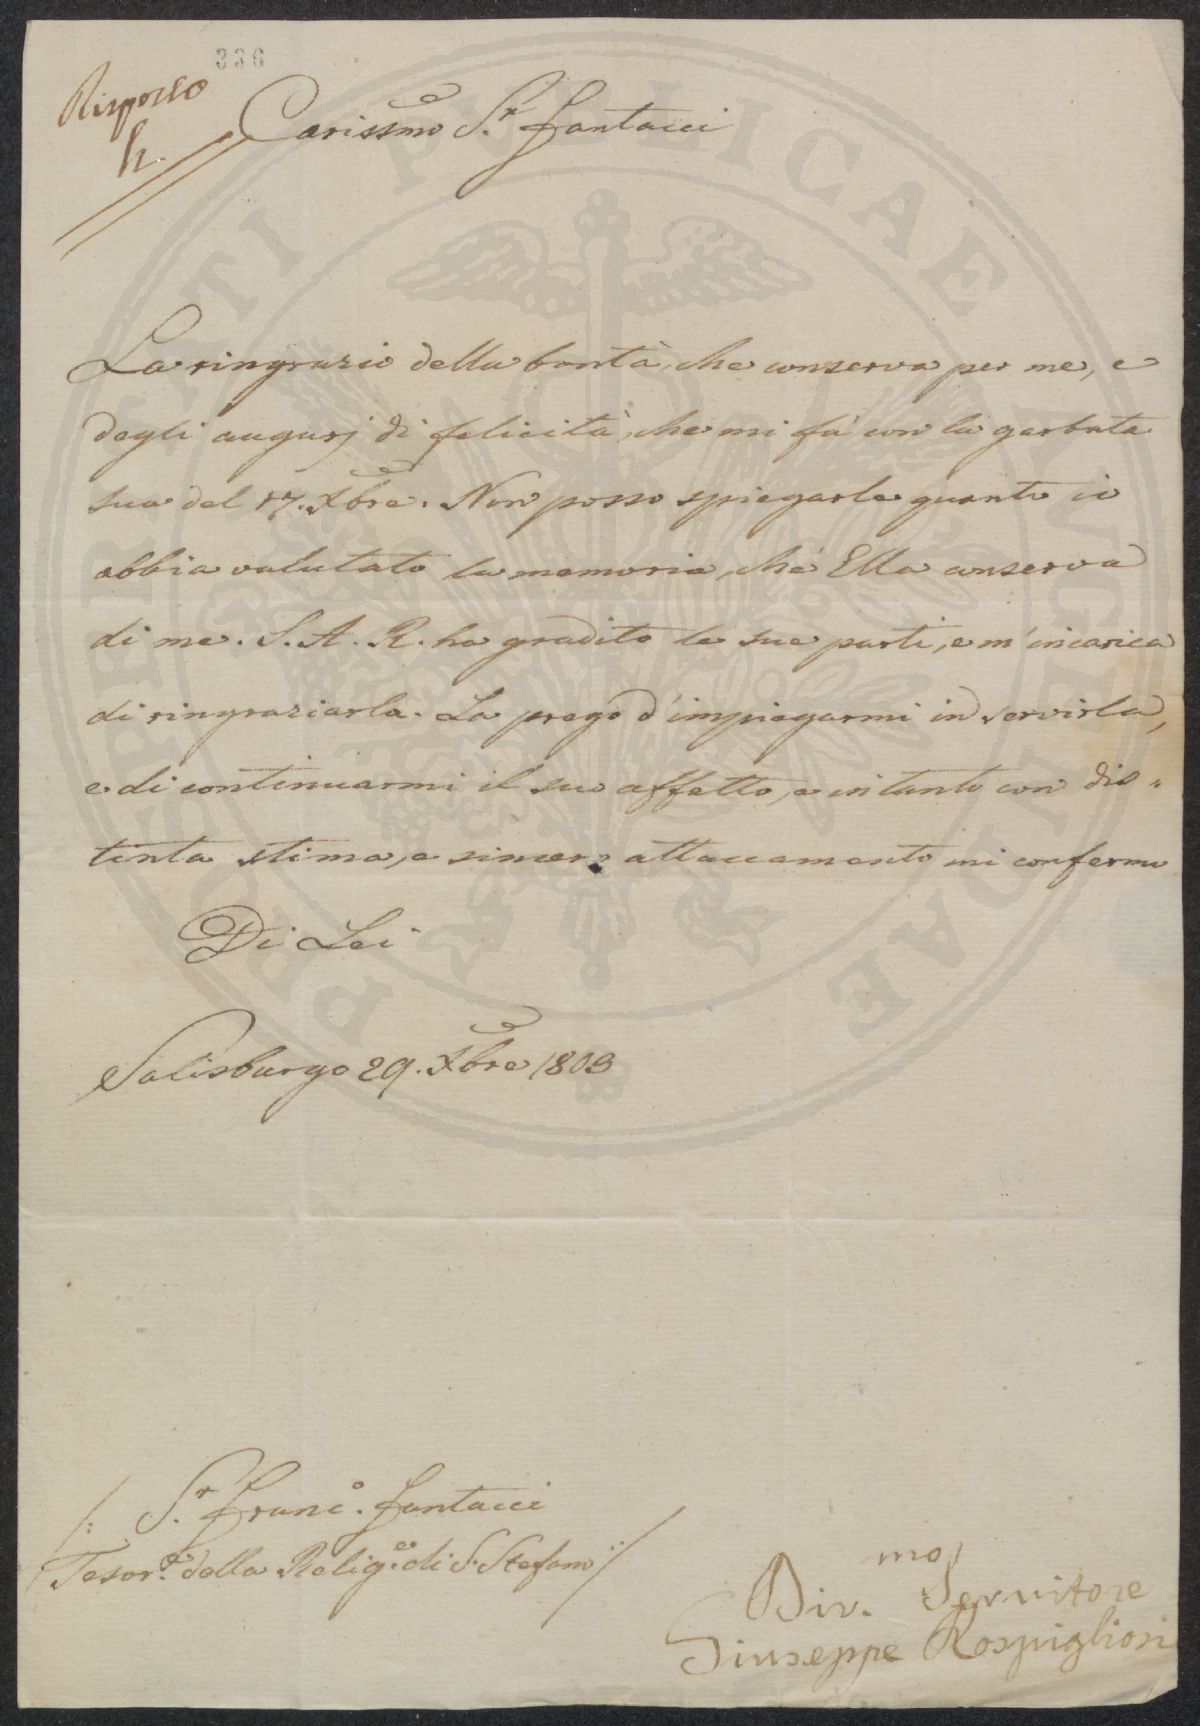 336
Risposto
li
Carissmo S.r Fantacci
La ringrazio della bontà, che conserva per me, e
degli augurj di felicità, che mi fa con la garbata
sua del 17. Xbre. Non posso spiegarle quanto io
abbia valutato la memoria, che Ella conserva
di me. S. A. R. ha gradito le sue parti, e m'incarica
di ringraziarla. La prego d'impiegarmi in servirla,
e di continuarmi il suo affetto, e intanto con dis-
tinta stima, e sincero attaccamento mi confermo
Di Lei
Salisburgo 29. Xbre 1803
/: S.r Franc.o Fantacci
Tesor.e della Relig.e di S. Stefano :/
Div.mo Servitore
Giuseppe Rospigliosi